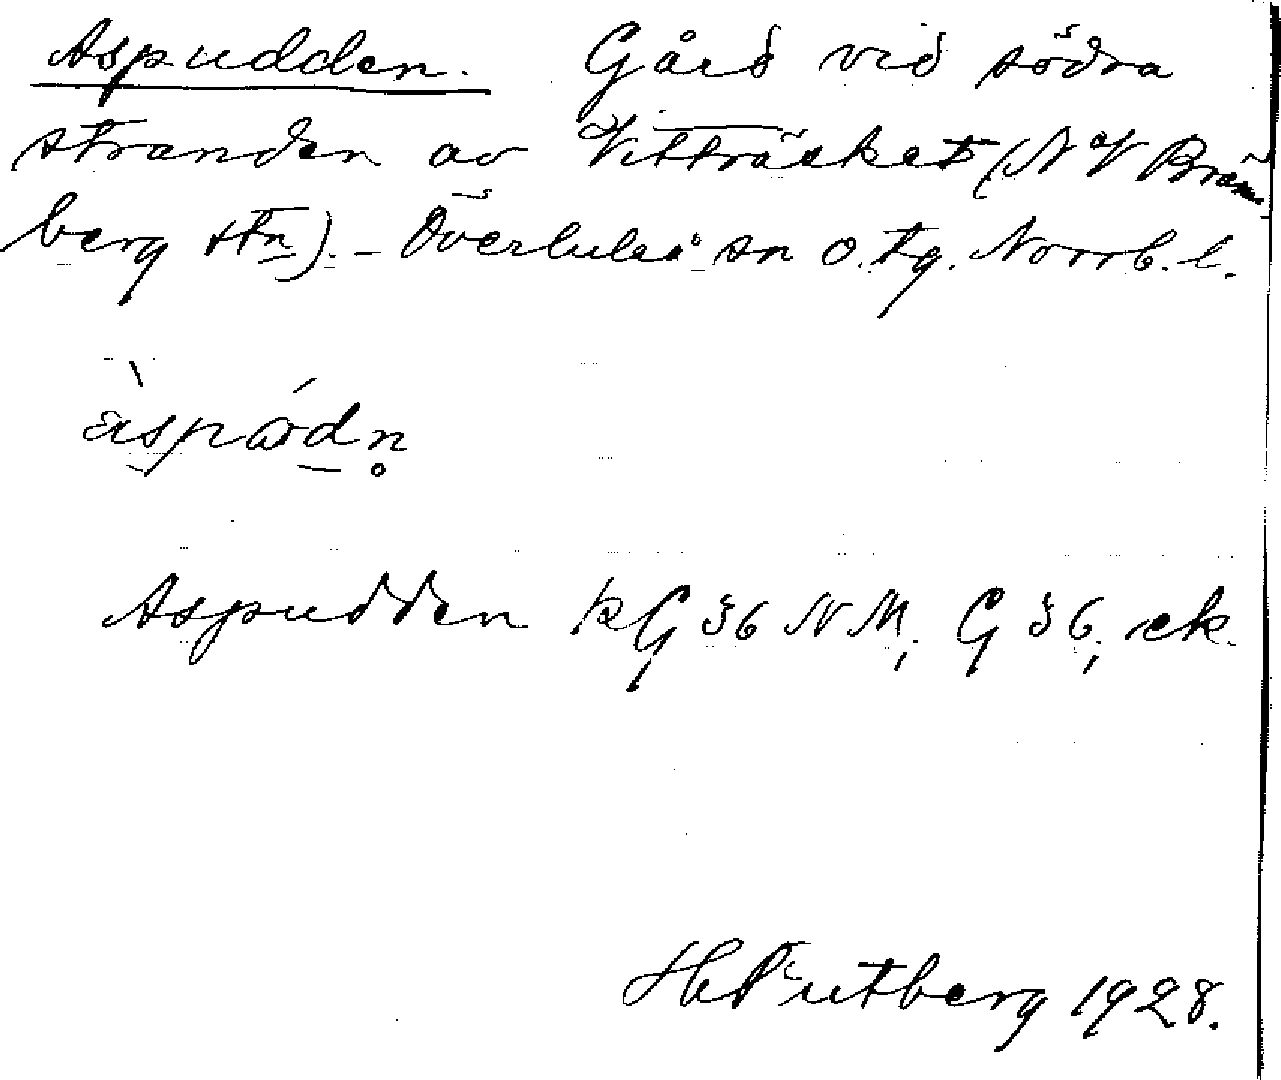 Aspudden. Gård vid södra
stranden av Vitträsket (NV Bränn
berg stn). – Överluleå sn o. tg. Norrb. l.
Aspudden G 36 NM; G 36, ek.
Hj Furtberg 1928.